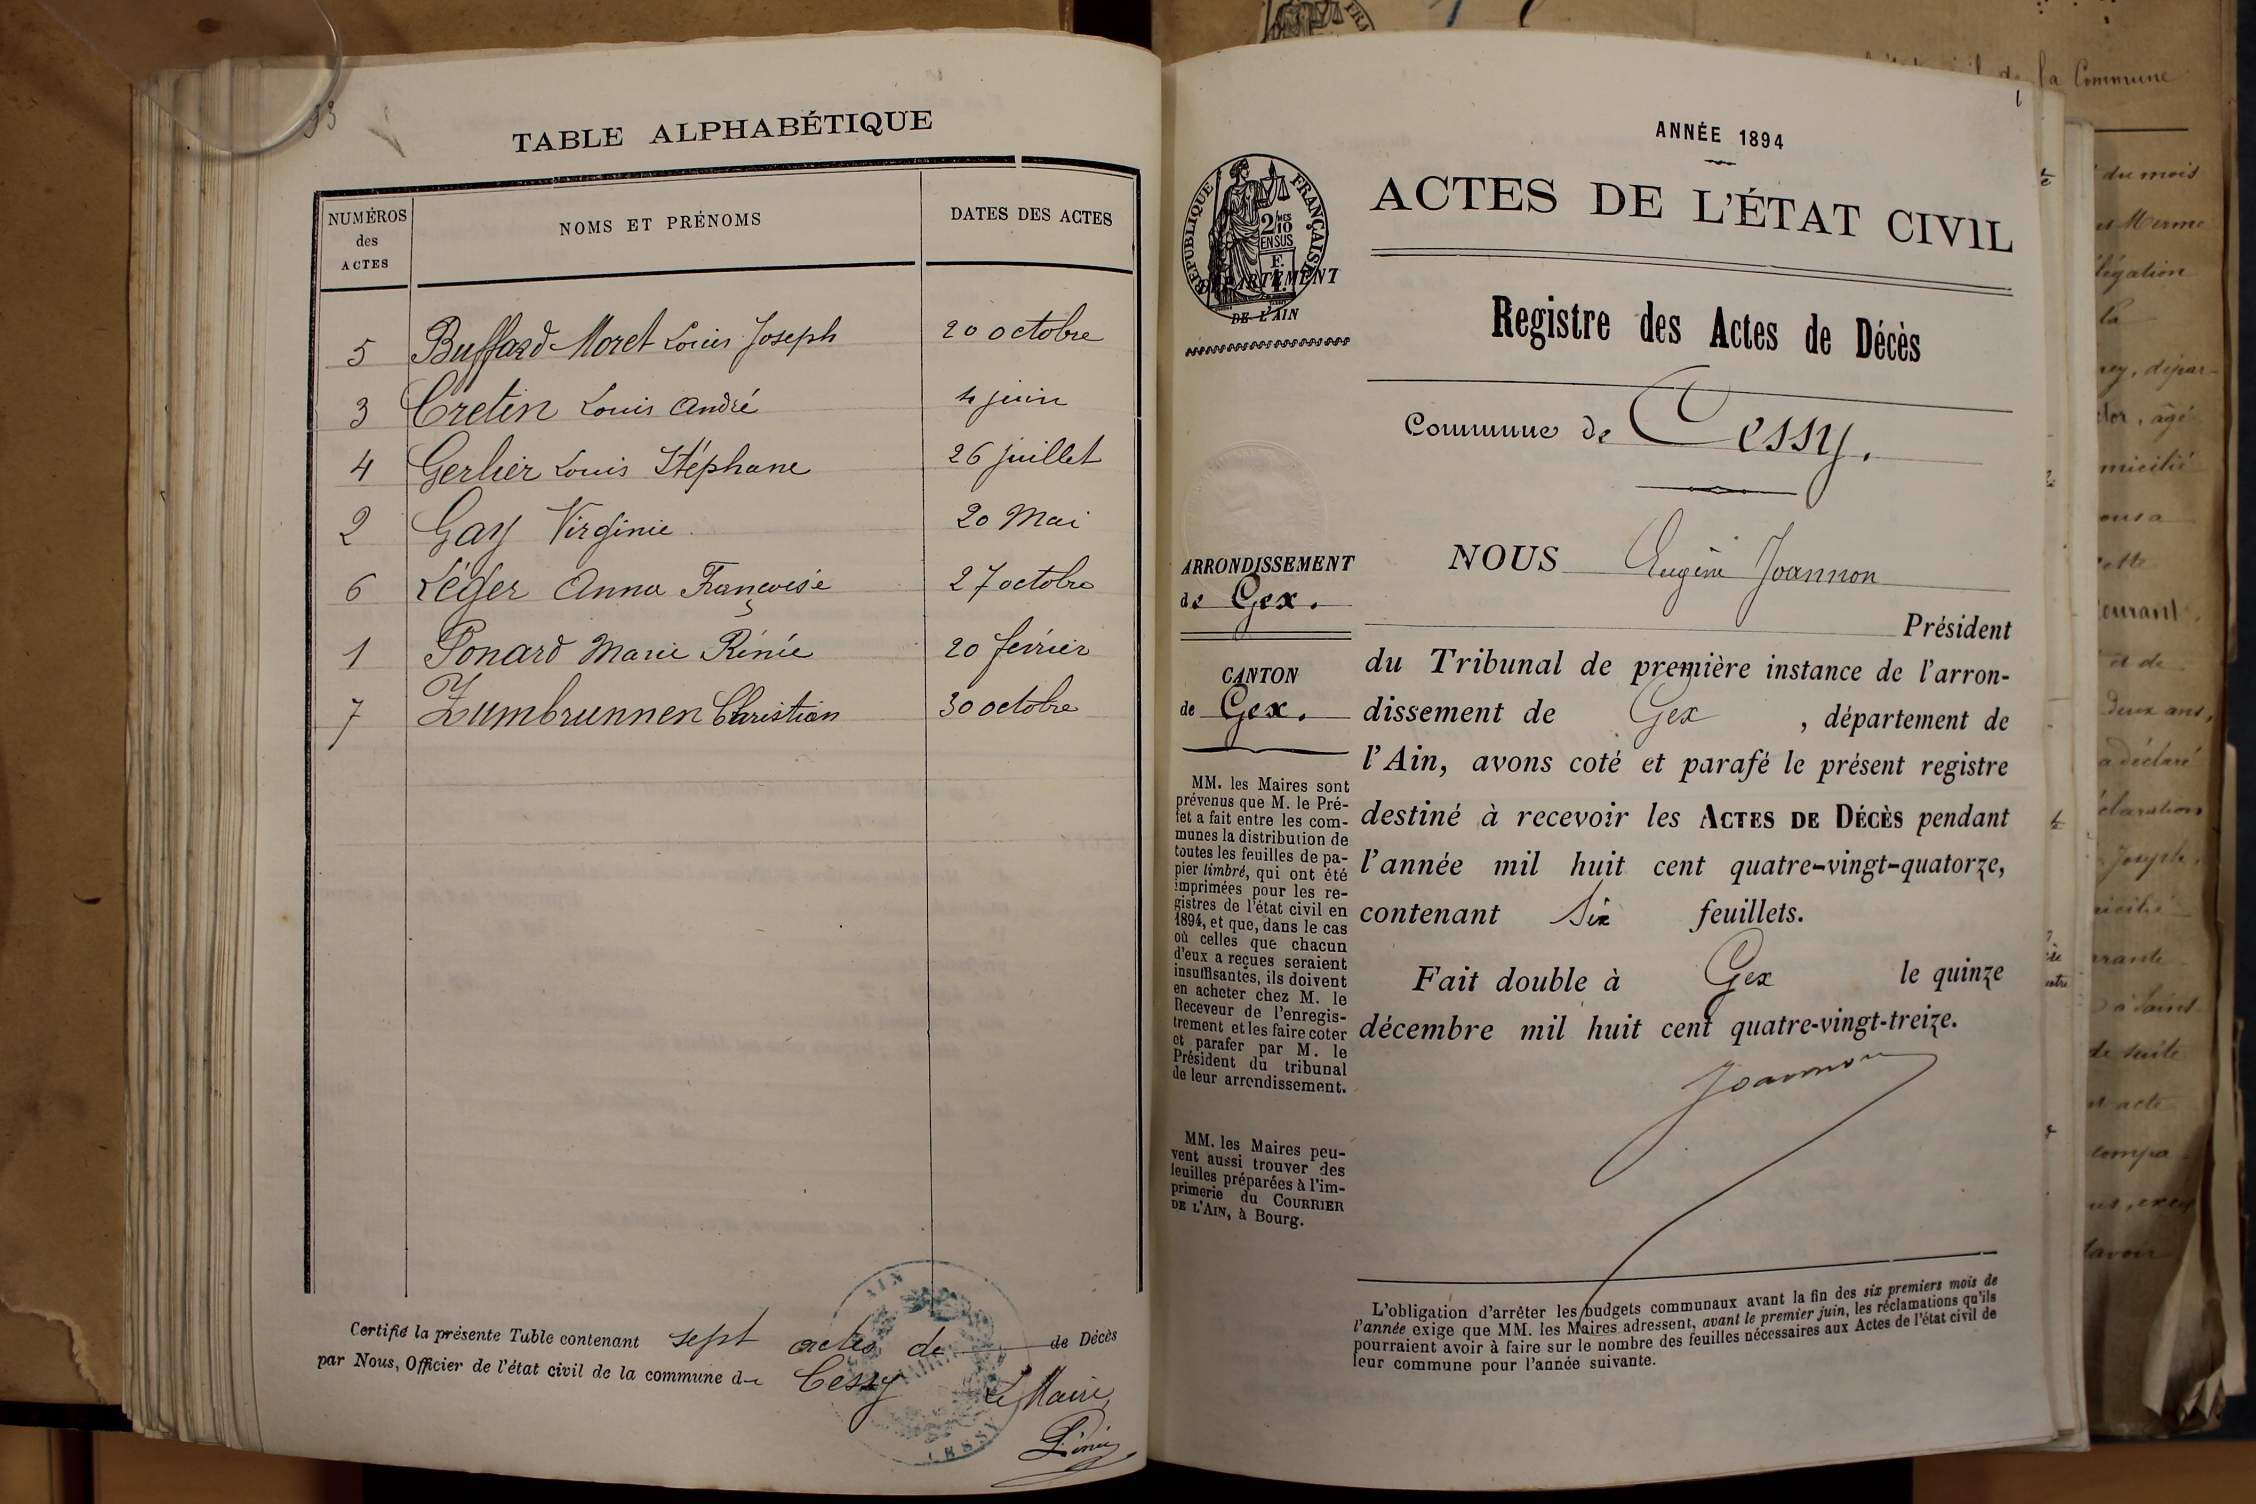 93
TABLE ALPHABÉTIQUE
NUMÉROS
des
ACTES
NOMS ET PRÉNOMS
DATES DES ACTES
5 Buffard-Moret Louis Joseph 20 octobre
3 Cretin Louis André 4 juin
4 Gerlier Louis Stéphane 26 juillet
2 Gay Virginie 20 Mai
6 Léger Anna Françoise 27 octobre
1 Ponard Marie Rénée 20 février
7 Zumbrunnen Christian 30 octobre
Certifié la présente Table contenant sept actes de de Décès
par Nous, Officier de l'état civil de la commune de Cessy
Le Maire
AIN
CESSY
1
ANNÉE 1894
ACTES DE L'ÉTAT CIVIL
RÉPUBLIQUE FRANÇAISE
2/10 MES
EN SUS
DÉPARTEMENT
DE L'AIN
Registre des Actes de Décès
Commune de Cessy.
ARRONDISSEMENT
de Gex.
CANTON
de Gex.
MM. les Maires sont
prévenus que M. le Pré-
fet a fait entre les com-
munes la distribution de
toutes les feuilles de pa-
pier timbré, qui ont été
imprimées pour les re-
gistres de l'état civil en
1894, et que, dans le cas
où celles que chacun
d'eux a reçues seraient
insuffisantes, ils doivent
en acheter chez M. le
Receveur de l'enregis-
trement et les faire coter
et parafer par M. le
Président du tribunal
de leur arrondissement.
MM. les Maires peu-
vent aussi trouver des
feuilles préparées à l'im-
primerie du COURRIER
DE L'AIN, à Bourg.
NOUS Eugène Joannon
Président
du Tribunal de première instance de l'arron-
dissement de Gex , département de
l'Ain, avons coté et parafé le présent registre
destiné à recevoir les ACTES DE DÉCÈS pendant
l'année mil huit cent quatre-vingt-quatorze,
contenant Six feuillets.
Fait double à Gex le quinze
décembre mil huit cent quatre-vingt-treize.
Joannon
L'obligation d'arrêter les budgets communaux avant la fin des six premiers mois de
l'année exige que MM. les Maires adressent, avant le premier juin, les réclamations qu'ils
pourraient avoir à faire sur le nombre des feuilles nécessaires aux Actes de l'état civil de
leur commune pour l'année suivante.
la Commune
du mois